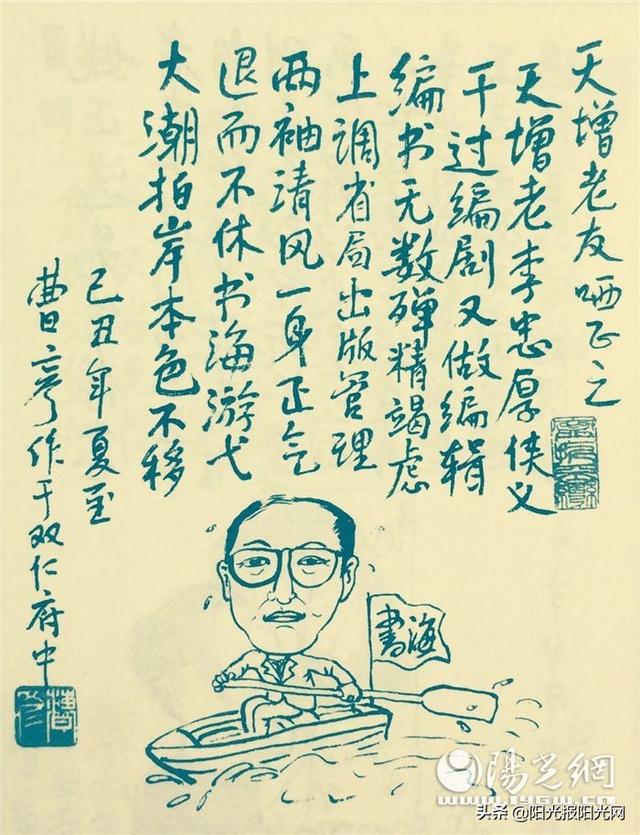 天增老友哂正之
天增老李忠厚侠义
干过编剧又做编辑
编书无数殚精竭虑
上调省局出版管理
两袖清风一身正气
退而不休书海游弋
大潮拍岸本色不移
己丑年夏至
曹 作于双仁府中
書海
陽光網
头条 @阳光报阳光网